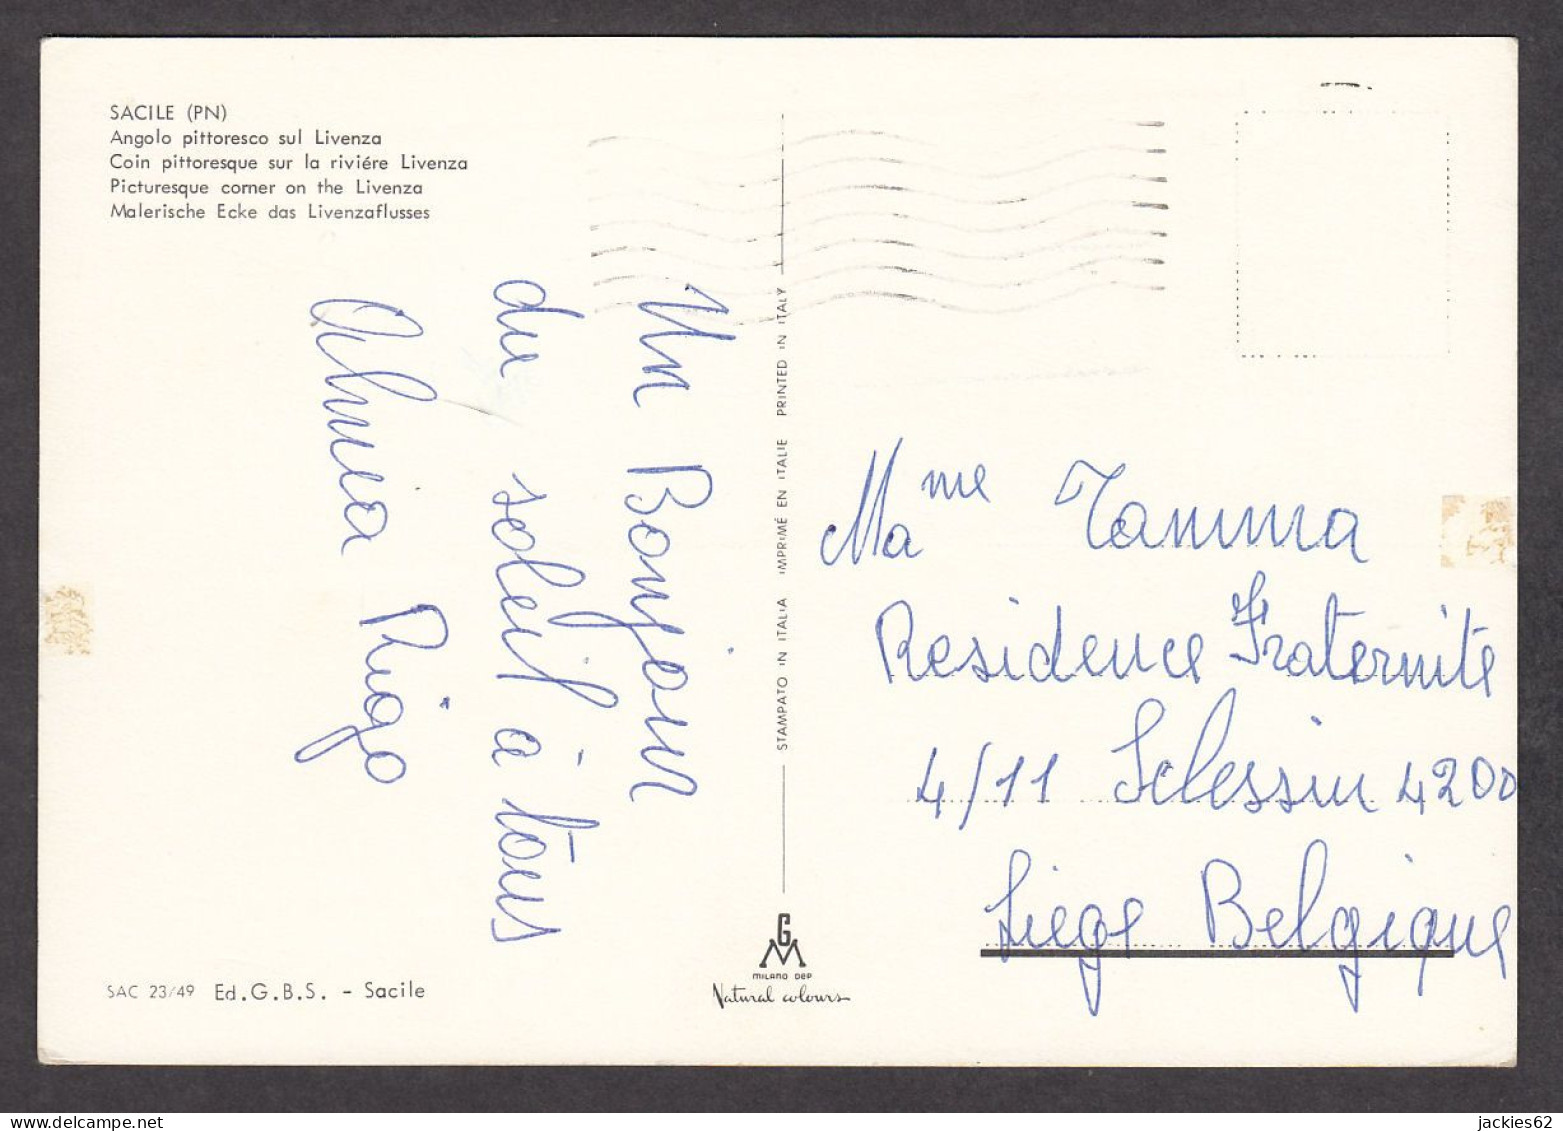 SACILE (PN)
Angolo pittoresco sul Livenza
Coin pittoresque sur la riviére Livenza
Picturesque corner on the Livenza
Malerische Ecke das Livenzaflusses
Un Bonjour
du soleil à tous
Rigo
STAMPATO IN ITALIA IMPRIMÉ EN ITALIE PRINTED IN ITALY
Mme Tamma
Residence Fraternite
4/11 Sclessin 4200
Liege Belgique
GM
MILANO DEP
Natural colours
SAC 23/49 Ed.G.B.S. - Sacile
jackies62